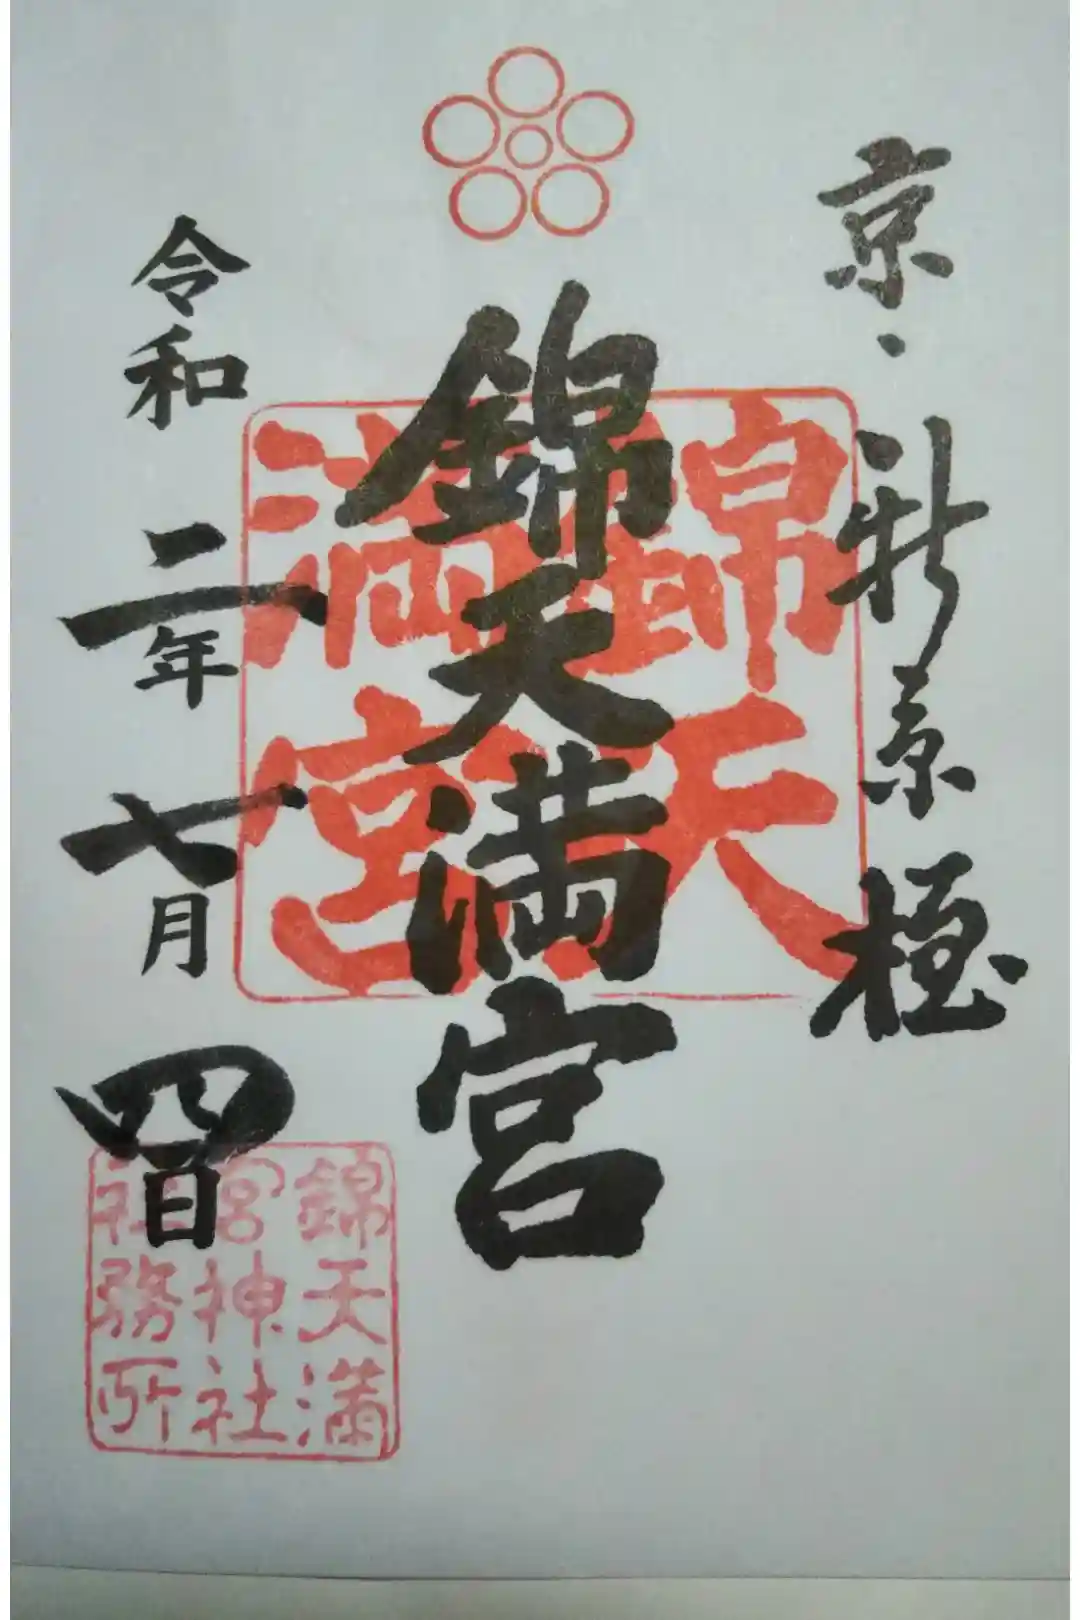 京、新京極
錦天満宮
令和二年七月四日
錦天
満宮
錦天満
宮神社
社務所